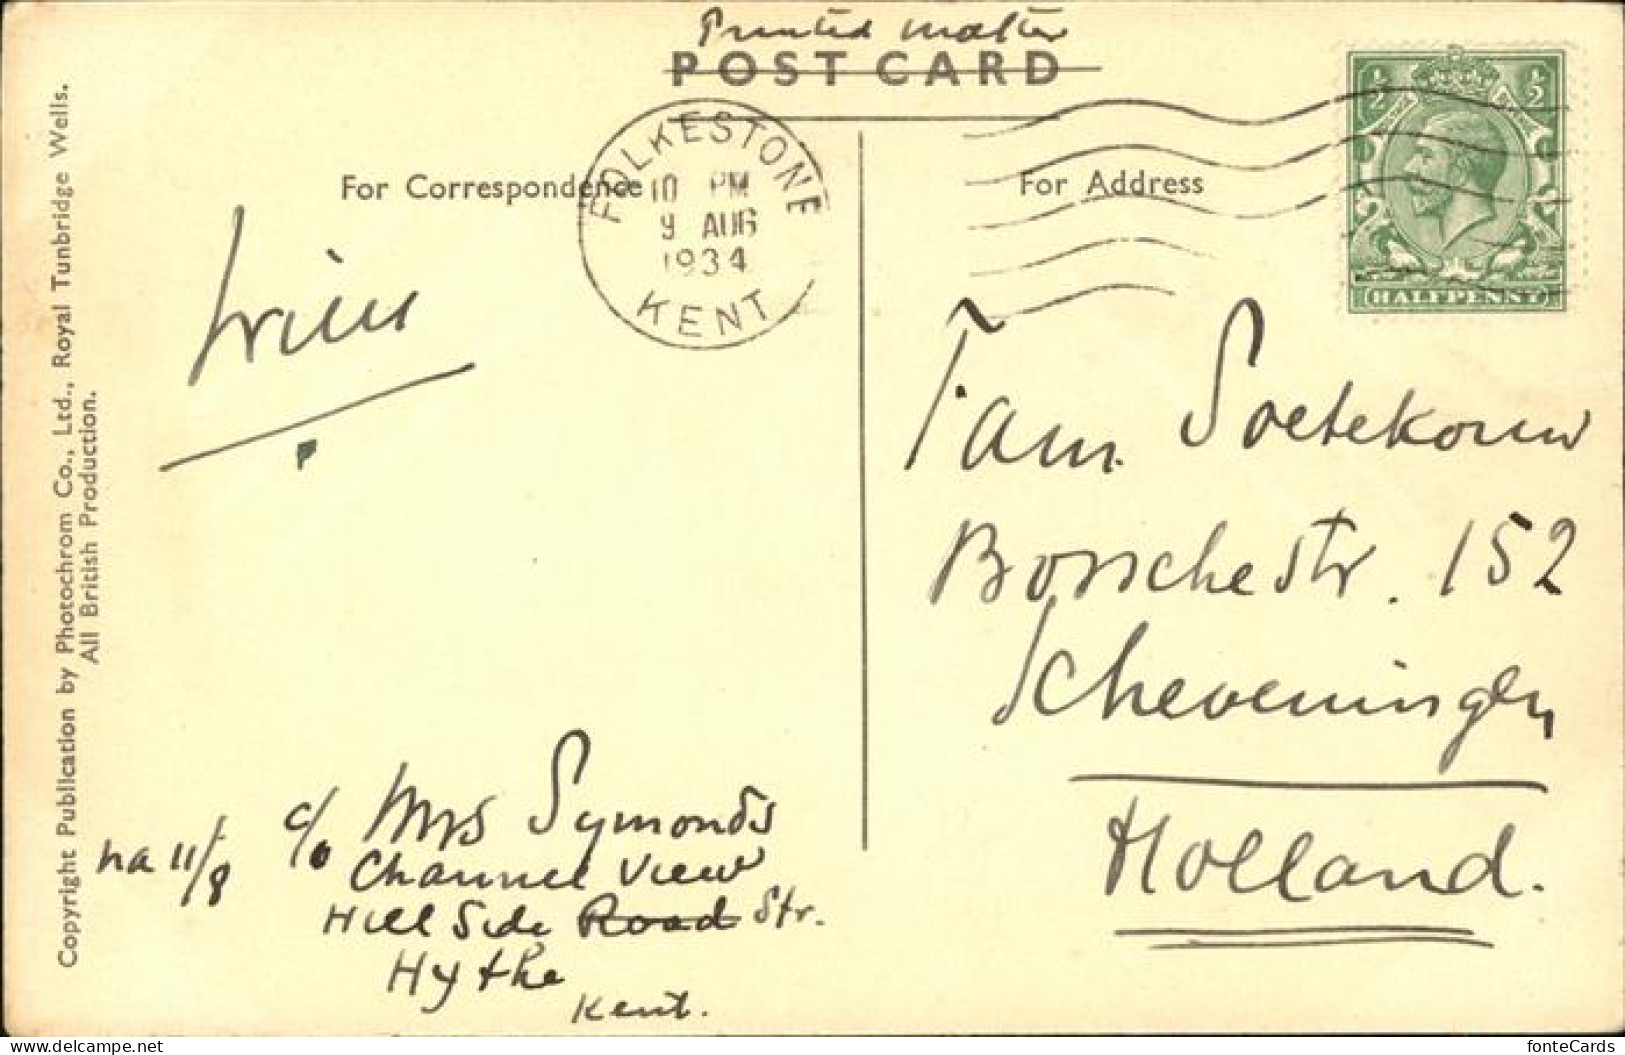 Printed matter
POST CARD
For Correspondence
FOLKESTONE
10 PM
9 AUG
1934
KENT
For Address
½ ½
HALFPENNY
Fam. Soetekouw
Bosschestr. 152
Scheveningen
Holland.
na 11/8
c/o Mrs Symonds
Channel View
Hill Side Road Str.
Hythe
Kent.
Copyright Publication by Photochrom Co., Ltd., Royal Tunbridge Wells.
All British Production.
delcampe.net
fonteCards